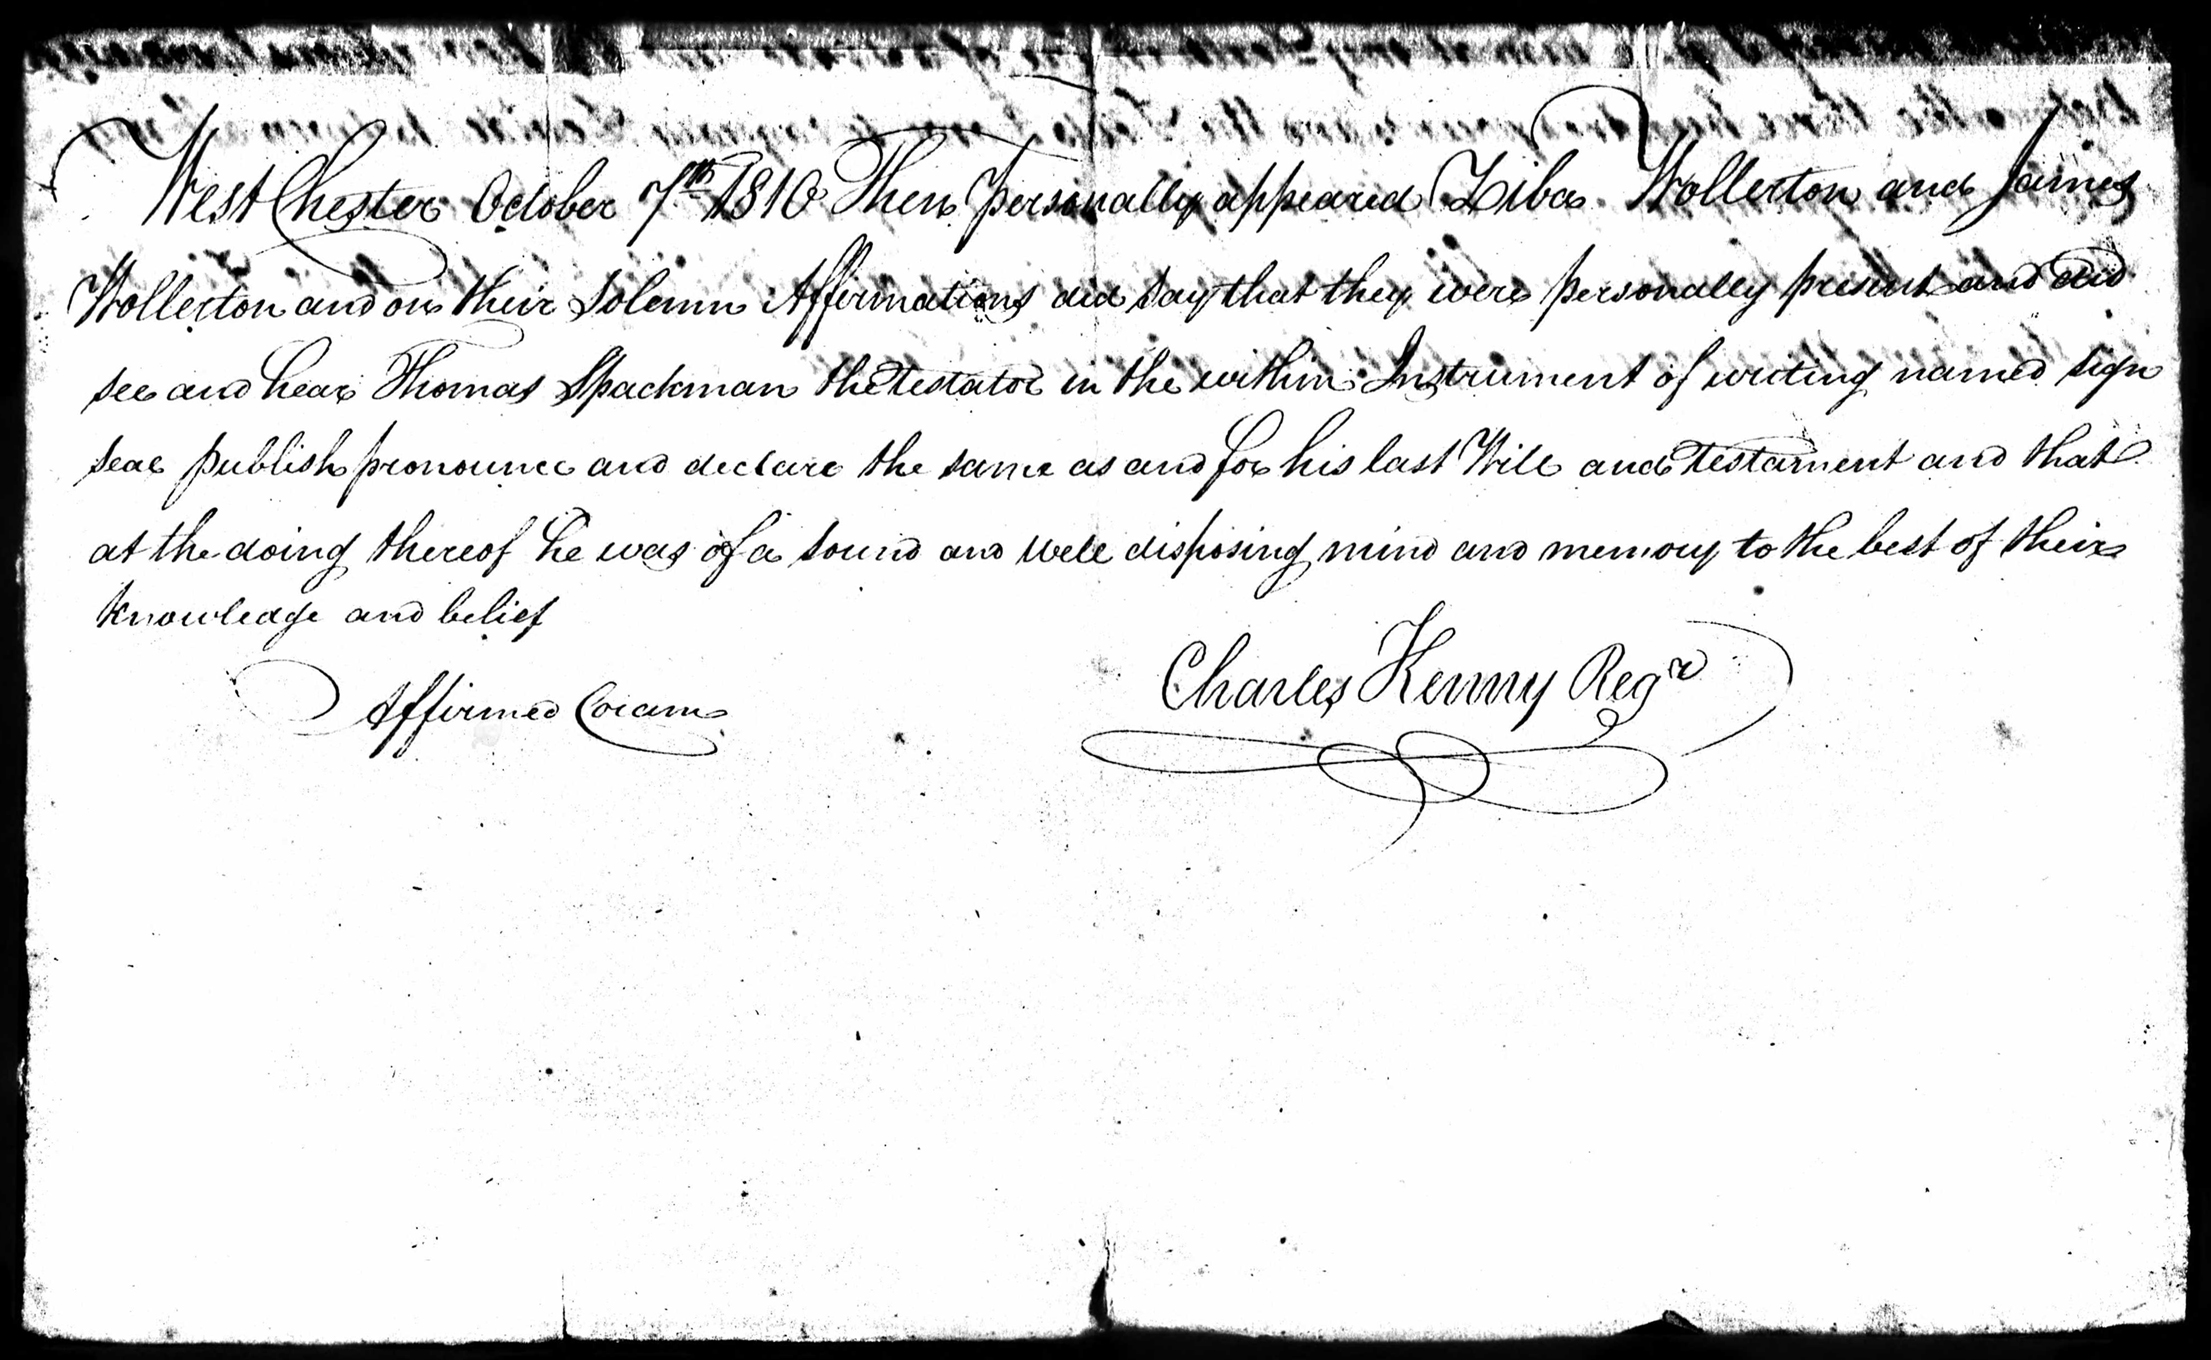 West Chester October 7th 1810 Then personally appeared Ziba Wollerton and James
Wollerton and on their Solemn Affirmations did say that they were personally present and did
see and hear Thomas Spackman the Testator in the within Instrument of writing named sign
seal publish pronounce and declare the same as and for his last Will and Testament and that
at the doing thereof he was of a sound and well disposing mind and memory to the best of their
knowledge and belief
Affirmed Coram
Charles Kenny Regr